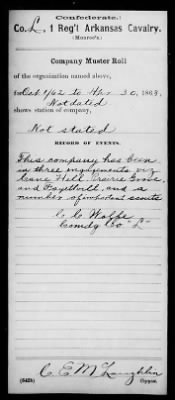 Confederate.
Co. L, 1 Reg't Arkansas Cavalry.
(Monroe's)
Company Muster Roll
of the organization named above,
for Oct 1/62 to Apr 30, 1863.
Not dated
shows station of company,
Not stated
RECORD OF EVENTS.
This company has been
in three engagements viz
Cane Hill, Prairie Grove
and Fayettvill, and a
number of important scouts
C. C. Wolfe
Comdg Co "L"
C. E. McLaughlin
(642h) Copyist.